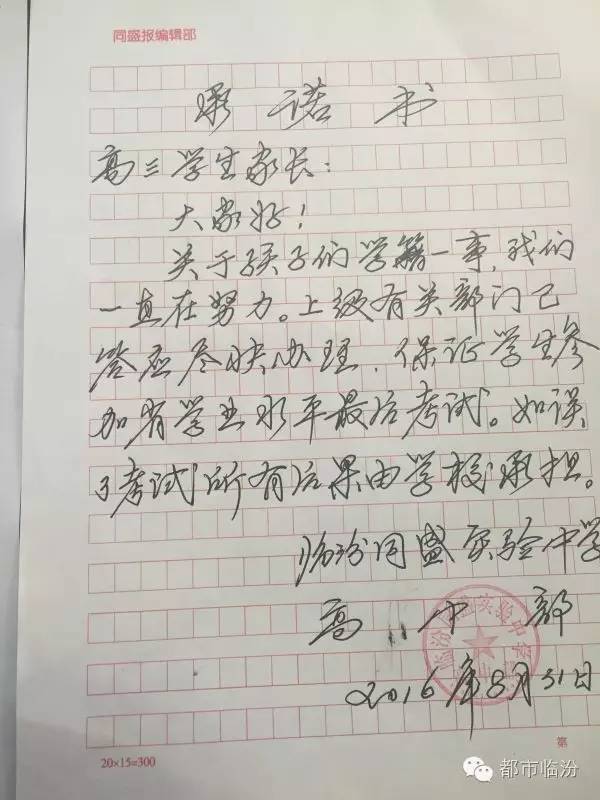 同盛报编辑部
承诺书
高三学生家长：
大家好！
关于孩子们学籍一事，我们
一直在努力。上级有关部门已
答应尽快办理，保证学生参
加省学业水平最后考试。如误
了考试所有后果由学校承担。
临汾同盛实验中学
高中部
临汾同盛实验中学
2016年8月31日
第
20×15=300
都市临汾